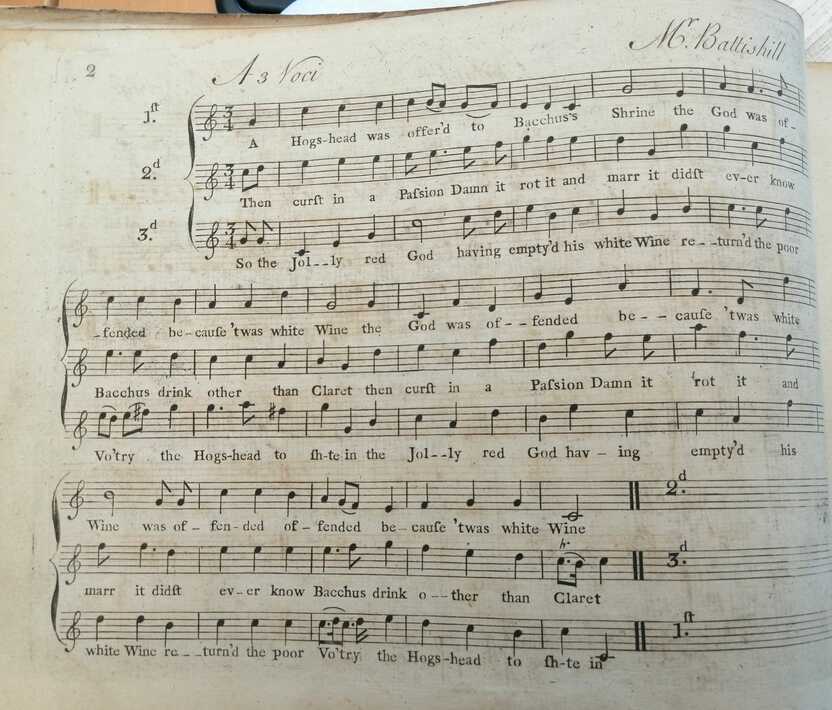 2
A 3 Voci
Mr. Battishill
1.ſt
A Hogs-head was offer'd to Bacchus's Shrine the God was of-
2.d
Then curſt in a Paſsion Damn it rot it and marr it didſt ev-er know
3.d
So the Jol--ly red God having empty'd his white Wine re--turn'd the poor
-fended be-cauſe 'twas white Wine the God was of--fended be--cauſe 'twas white
Bacchus drink other than Claret then curſt in a Paſsion Damn it 'rot it and
Vo'try the Hogs-head to ſh-te in the Jol--ly red God hav-ing empty'd his
Wine was of-fen-ded of-fended be-cauſe 'twas white Wine
2.d
marr it didſt ev-er know Bacchus drink o-ther than Claret
3.d
white Wine re--turn'd the poor Vo'try the Hogs-head to ſh-te in
1.ſt